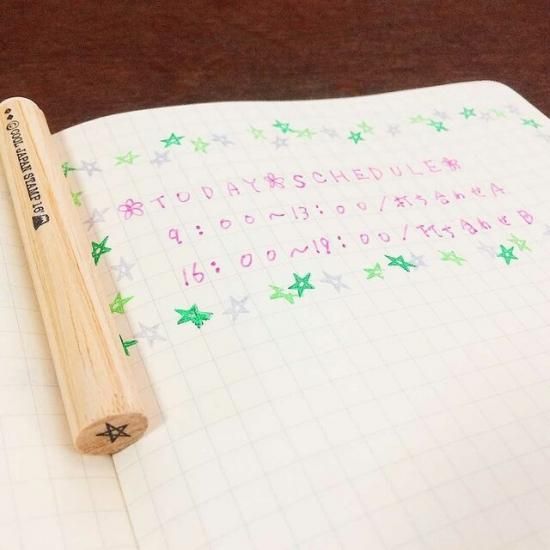 ©COOL JAPAN STAMP 16
TODAY SCHEDULE
9:00~13:00/打ち合わせA
16:00~19:00/打ち合わせB